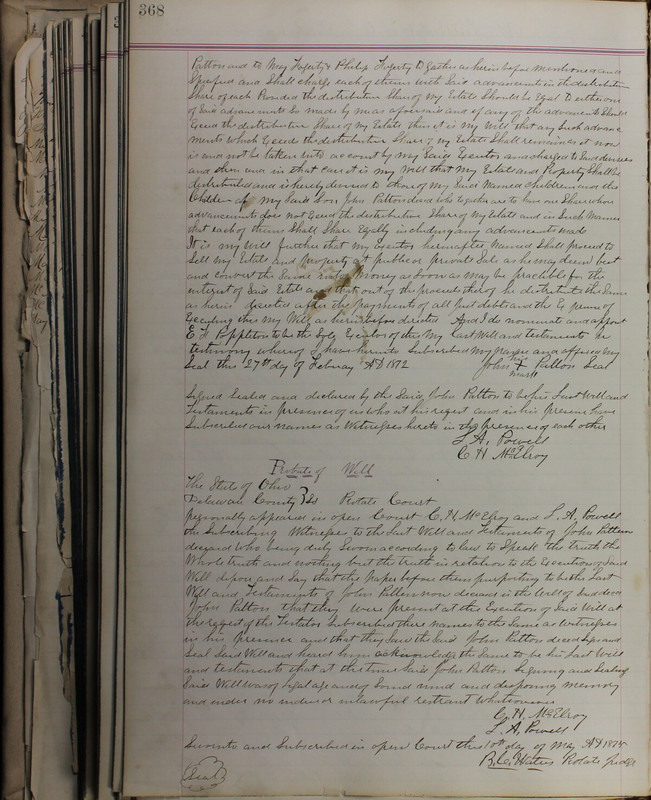 368
Patton and to May Fogerty & Philip Fogerty together as herein before mentioned and
Specified and Shall charge each of them with Said advancements in the distributive
Share of each Provided the distributive Share of my Estate Should be Equal to either one
of Said advancements So made by me as aforesaid and if any of the advancements Should
Exceed the distributive Share of My Estate then it is my Will that any Such advance
ments which Exceeds the distributive Share of my Estate Shall remain as it now
is and not be taken into account by my Said Executor and charged to Said devisees
and then and in that case it is my Will that my Estate and Property Shall be
distributed and is hereby devised to those of my Said Named Children and the
Children of my Said Son John Patton decd who together are to have one Share whose
advancements does not Exceed the distributive Share of my Estate and in Such Manner
that each of them Shall Share Equally including any advancements made
It is my Will further that my Executor hereinafter Named Shall proceed to
Sell my Estate and property at public or private Sale as he may deem best
and convert the Same into Money as Soon as may be practible for the
interest of Said Estate and that out of the proceeds thereof he distribute the Same
as herein directed after the payments of all just debts and the Expense of
Executing this my Will as herein before directed And I do nominate and appoint
E F Poppleton to be the Sole Executor of this My Last Will and testament In
testimony whereof I have hereunto Subscribed My Name and affixed my
Seal this 27th day of February AD 1872 John X Patton Seal
his
mark
Signed Sealed and declared by the Said John Patton to be his Last Will and
Testament in presence of us who at his request and in his presence have
Subscribed our names as Witnesses hereto in the presence of each other
S. A. Powell
C H McElroy
Probate of Will
The State of Ohio
Delaware County } SS Probate Court
Personally appeared in open Court C. H. McElroy and S. A. Powell
the Subscribing Witnesses to the Last Will and Testament of John Patton
deceased who being duly Sworn according to law to Speak the truth the
Whole truth and nothing but the truth in relation to the Execution of Said
Will depose and Say that the Paper before them purporting to be the Last
Will and Testament of John Patton now deceased is the Will of Said decd
John Patton that they were present at the Execution of Said Will at
the request of the Testator Subscribed their names to the Same as Witnesses
in his presence and that they Saw the Said John Patton decd Sign and
Seal Said Will and heard him acknowledge the Same to be his Last Will
and testament that at the time Said John Patton Signing and Sealing
Said Will was of legal age and of Sound mind and disposing memory
and under no undue or unlawful restraint whatsoever
C. H. McElroy
S. A. Powell
Sworn to and Subscribed in open Court this 10th day of May AD 1875
B. C. Waters Probate Judge
Seal